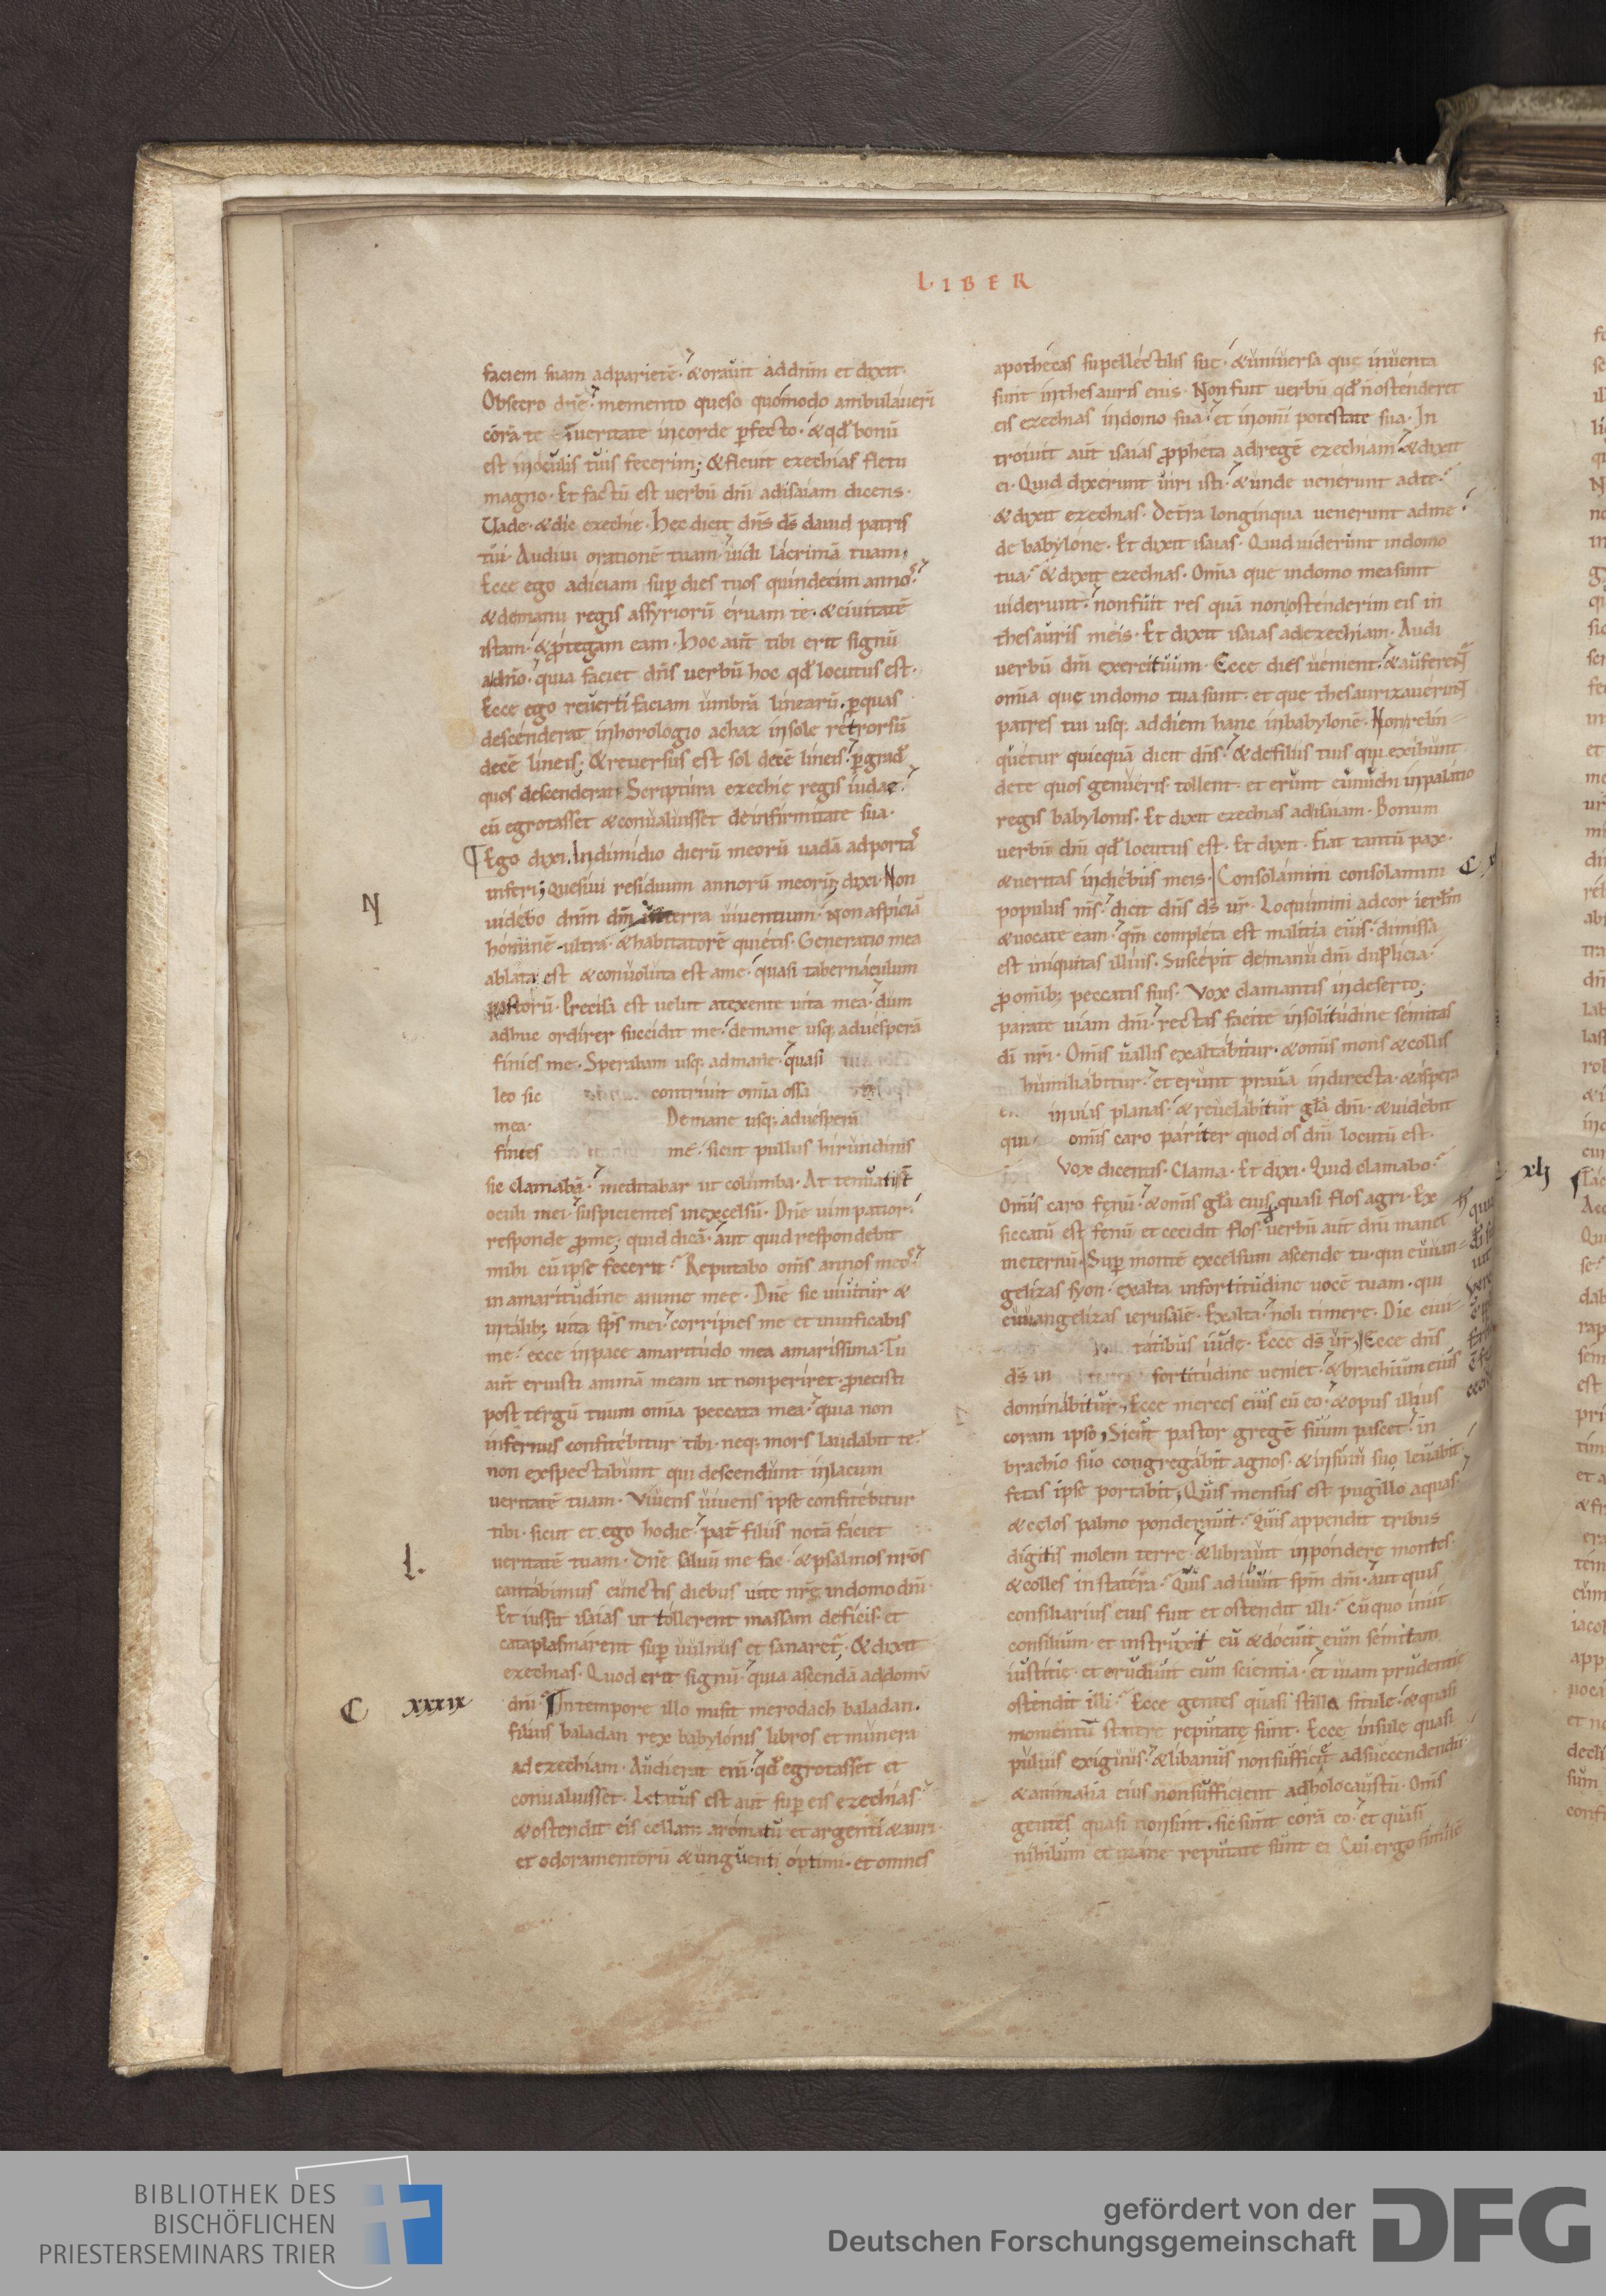 LIBER
faciem suam adparietē· & orauit addn̄m et dixit·
Obsecro dn̄e· memento queso quomodo ambulauerī
corā te inueritate incorde ꝑfecto· & qđ bonū
est inoculis tuis fecerim; & fleuit ezechias fletu
magno· Et factū est uerbū dn̄i adisaiam dicens·
Uade· & dic ezechie· Hec dicit dn̄s ds̄ dauid patris
tui· Audiui orationē tuam· uidi lacrimā tuam·
Ecce ego adiciam sup̄ dies tuos quindecim annos·
& demanu regis assyriorū eruam te· & ciuitatē
istam· & ꝓtegam eam· Hoc aut̄ tibi erit signū
adn̄o· quia faciet dn̄s uerbū hoc qđ locutus est·
Ecce ego reuerti faciam umbrā linearū· ꝑquas
descenderat inhorologio achaz insole retrorsū
decē lineis; & reuersus est sol decē lineis· ꝑgrad'
quos descenderat· Scriptura ezechie regis iudae·
cū egrotasset & conualuisset deinfirmitate sua·
Ego dixi· Indimidio dierū meorū uadā adportas
inferi; Quesiui residuum annorū meorū; dixi· Non
uidebo dn̄m dm̄ interra uiuentium· Non aspiciā
hominē ultra· & habitatorē quietis· Generatio mea
ablata est & conuoluta est ame· quasi tabernaculum
pastorū· Precisa est uelut atexente uita mea· dum
adhuc ordirer succidit me· demane usq; aduesperā
finies me· Sperabam usq; admane· quasi
leo sic contriuit omīa ossa
mea· Demane usq; aduesperū
finies me· sicut pullus hirundinis
sic clamabā· meditabar ut columba· Attenuatist̄
oculi mei· suspicientes inexcelsū· Dn̄e uim patior·
responde ꝓme; quid dicā· aut quid respondebit
mihi cū ipse fecerit· Reputabo om̄s annos meos·
inamaritudine anime mee· Dn̄e sic uiuitur &
intalib; uita sps̄ mei· corripies me et uiuificabis
me· ecce inpace amaritudo mea amarissima· Tu
aut̄ eruisti animā meam ut nonperiret· ꝓiecisti
post tergū tuum omīa peccata mea· quia non
infernus confitebitur tibi· neq; mors laudabit te·
non exspectabunt qui descendunt inlacum
ueritatē tuam· Viuens uiuens ipse confitebitur
tibi· sicut et ego hodie· pat̄ filiis notā faciet
ueritatē tuam· Dn̄e saluū me fac· & psalmos nr̄os
cantabimus cunctis diebus uite nr̄e indomo dn̄i·
Et iussit isaias ut tollerent massam deficis· et
cataplasmarent sup̄ uulnus et sanaret̄; & dixit
ezechias· Quod erit signū· quia ascendā addomū
dn̄i· Intempore illo misit merodach baladan·
filius baladan rex babylonis libros et munera
adezechiam· Audierat eni· qđ egrotasset et
conualuisset· Letatus est aut̄ sup̄ eis ezechias·
& ostendit eis cellam aromatū et argenti & auri·
et odoramentorū & unguenti optimi· et omnes
N
l·
C xxxix
apothecas supellectilis sue· & uniuersa que inuenta
sunt inthesauris eius· Non fuit uerbū qđ n̄ ostenderet
eis ezechias indomo sua· et inomī potestate sua· In
troiuit aut̄ isaias ꝓpheta adregē ezechiam· & dixit
ei· Quid dixerunt uiri isti· & unde uenerunt adte·
& dixit ezechias· Det̄ra longinqua uenerunt adme·
de babylone· Et dixit isaias· Quid uiderunt indomo
tua· & dixit ezechias· Omīa que indomo mea sunt
uiderunt· nonfuit res quā non ostenderim eis in
thesauris meis· Et dixit isaias adezechiam· Audi
uerbū dn̄i exercituum· Ecce dies uenient· & auferent̄
omīa que indomo tua sunt· et que thesaurizauerunt
patres tui usq; addiem hanc inbabylonē· Non relin-
quetur quicquā dicit dn̄s· & defiliis tuis qui exibunt
dete quos genueris· tollent· et erunt eunuchi inpalatio
regis babylonis· Et dixit ezechias adisaiam· Bonum
uerbū dn̄i qđ locutus est· Et dixit· Fiat tantū pax·
& ueritas indiebus meis· Consolamini consolamini
populus ms̄· dicit dn̄s ds̄ ur̄· Loquimini adcor ierlm̄
& uocate eam· qm̄ completa est malitia eius· dimissa
est iniquitas illius· Suscepit demanu dn̄i duplicia·
ꝓ omīb; peccatis suis· Vox clamantis indeserto;
parate uiam dn̄i· rectas facite insolitudine semitas
dī nr̄i· Om̄is uallis exaltabitur· & om̄is mons & collis
humiliabitur· et erunt praua indirecta· & aspera
inuias planas· & reuelabitur gl̄a dn̄i· & uidebit
om̄is caro pariter quod os dn̄i locutū est·
Vox dicentis· Clama· Et dixi· Quid clamabo·
Om̄is caro fenū· & om̄is gl̄a eius quasi flos agri· Ex
siccatū est fenū et cecidit flos· uerbū aut̄ dn̄i manet
ineternū· Sup̄ montē excelsum ascende tu· qui euuan-
gelizas syon· exalta infortitudine uocē tuam· qui
euuangelizas ierusalē· Exalta· noli timere· Dic ciui-
tatibus iude· Ecce ds̄ ur̄· Ecce dn̄s
ds̄ in fortitudine ueniet· & brachium eius
dominabitur; Ecce merces eius cū eo· & opus illius
coram ipso; Sicut pastor gregē suum pascet· in
brachio suo congregabit agnos· & insinu suo leuabit·
fetas ipse portabit; Quis mensus est pugillo aquas·
& celos palmo ponderauit· Quis appendit tribus
digitis molem terre· & librauit inpondere montes·
& colles instatera· Quis adiuuit spm̄ dn̄i· aut quis
consiliarius eius fuit et ostendit illi· Cū quo iniit
consilium· et instruxit eū & docuit eum semitam
iustitie· et erudiuit eum scientia· et uiam prudentie
ostendit illi· Ecce gentes quasi stilla situle· & quasi
momentū statere reputate sunt· Ecce insule quasi
puluis exiguus· & libanus nonsufficiet adsuccendendū·
& animalia eius nonsufficient adholocaustū· Om̄s
gentes quasi nonsint· sic sunt corā eo· et quasi
nihilum et inane reputate sunt ei· Cui ergo similē
C
xlj
BIBLIOTHEK DES
BISCHÖFLICHEN
PRIESTERSEMINARS TRIER
gefördert von der
Deutschen Forschungsgemeinschaft
DFG